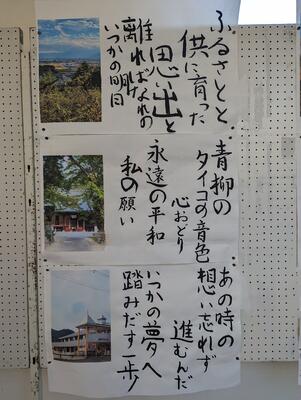 ふるさとと
供に育った
思い出と
ればなれの
いつかの明日
青柳の
タイコの音色
心おどり
永遠の平和
私の願い
あの時の
想い忘れず
進むんだ
いつかの夢へ
踏みだす一歩